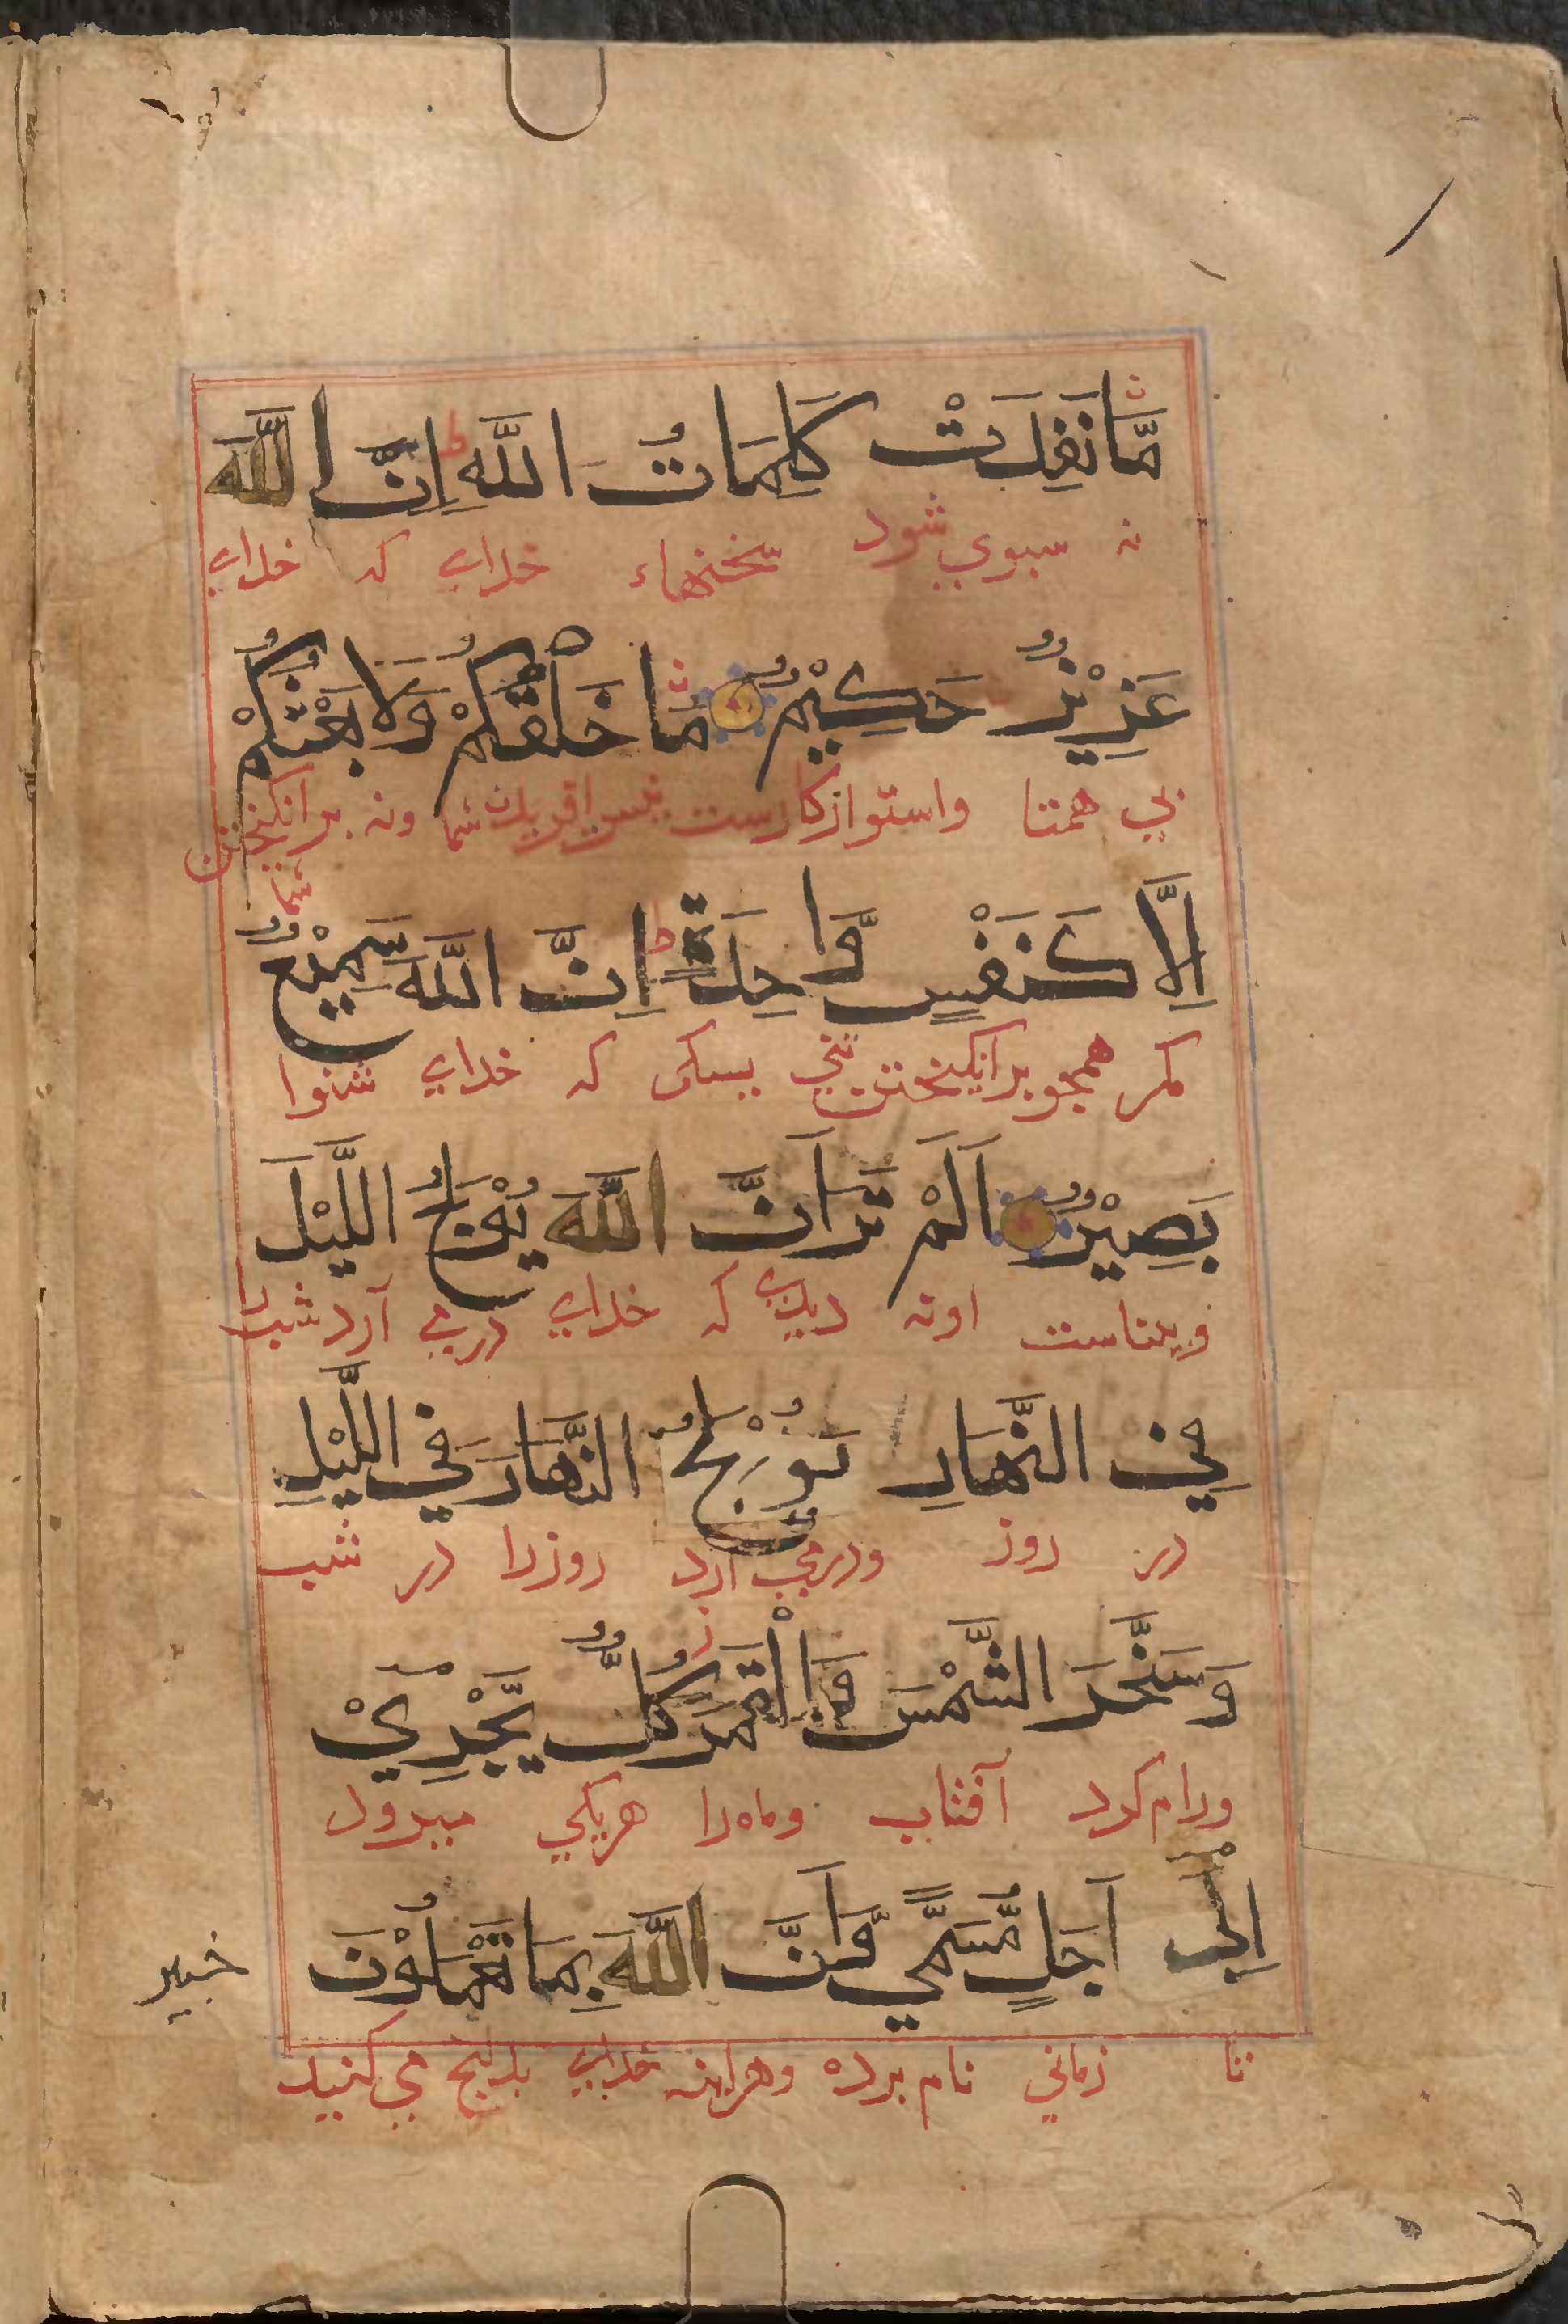 مَّا نَفِدَتْ كَلِمَاتُ اللَّهِ اِنَّ اللَّهَ
نه سبوي شود سخنهاء خداي که خداي
عَزِيْزٌ حَكِيْمٌ مَا خَلْقُكُمْ وَلَا بَعْثُكُمْ
بي همتا واستوار کارست نيست افريدن شما ونه برانکيختن
شما
اِلَّا كَنَفْسٍ وَّاحِدَةٍ اِنَّ اللَّهَ سَمِيْعٌ
مکر همجو برانکيختن تني يکي که خداي شنوا
بَصِيْرٌ اَلَمْ تَرَ اَنَّ اللَّهَ يُوْلِجُ اللَّيْلَ
وبيناست اونه ديدي که خداي درمي آرد شب
فِي النَّهَارِ يُوْلِجُ النَّهَارَ فِي اللَّيْلِ
در روز ودرمي آرد روزرا در شب
وَسَخَّرَ الشَّمْسَ وَالْقَمَرَ كُلٌّ يَّجْرِيْ
ورام کرد آفتاب وماه را هريکي ميرود
اِلٰى اَجَلٍ مُّسَمًّي وَّاَنَّ اللَّهَ بِمَا تَعْمَلُوْنَ
خبير
تا زماني نام برده وهراينه خداي بدانج مي کنيد